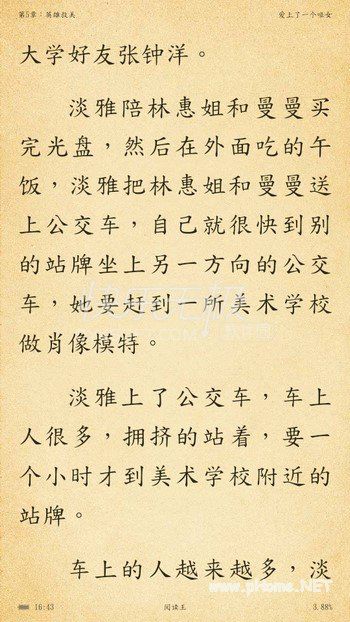 第5章：英雄救美 爱上了一个哑女
大学好友张钟洋。
淡雅陪林惠姐和曼曼买
完光盘，然后在外面吃的午
饭，淡雅把林惠姐和曼曼送
上公交车，自己就很快到别
的站牌坐上另一方向的公交
车，她要赶到一所美术学校
做肖像模特。
淡雅上了公交车，车上
人很多，拥挤的站着，要一
个小时才到美术学校附近的
站牌。
车上的人越来越多，淡
www.pHome.NET
16:43 阅读王 3.88%